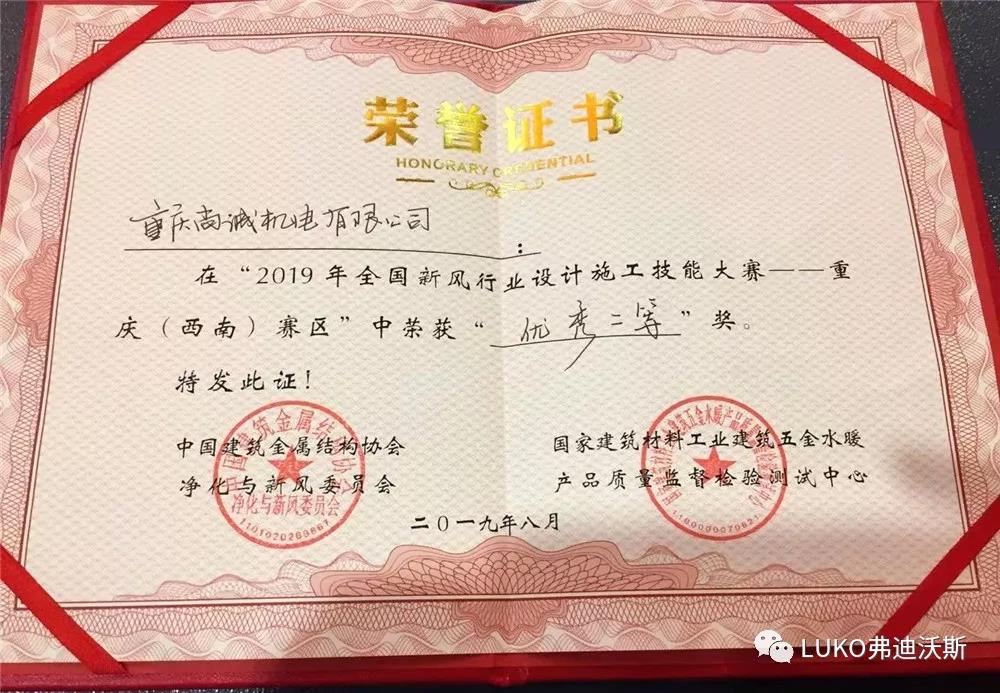 荣誉证书
HONORARY CREDENTIAL
重庆尚诚机电有限公司:
在“2019年全国新风行业设计施工技能大赛——重
庆(西南)赛区”中荣获“优秀二等”奖。
特发此证!
中国建筑金属结构协会
净化与新风委员会
国家建筑材料工业建筑五金水暖
产品质量监督检验测试中心
二〇一九年八月
中国建筑金属结构协会
净化与新风委员会
LUKO弗迪沃斯